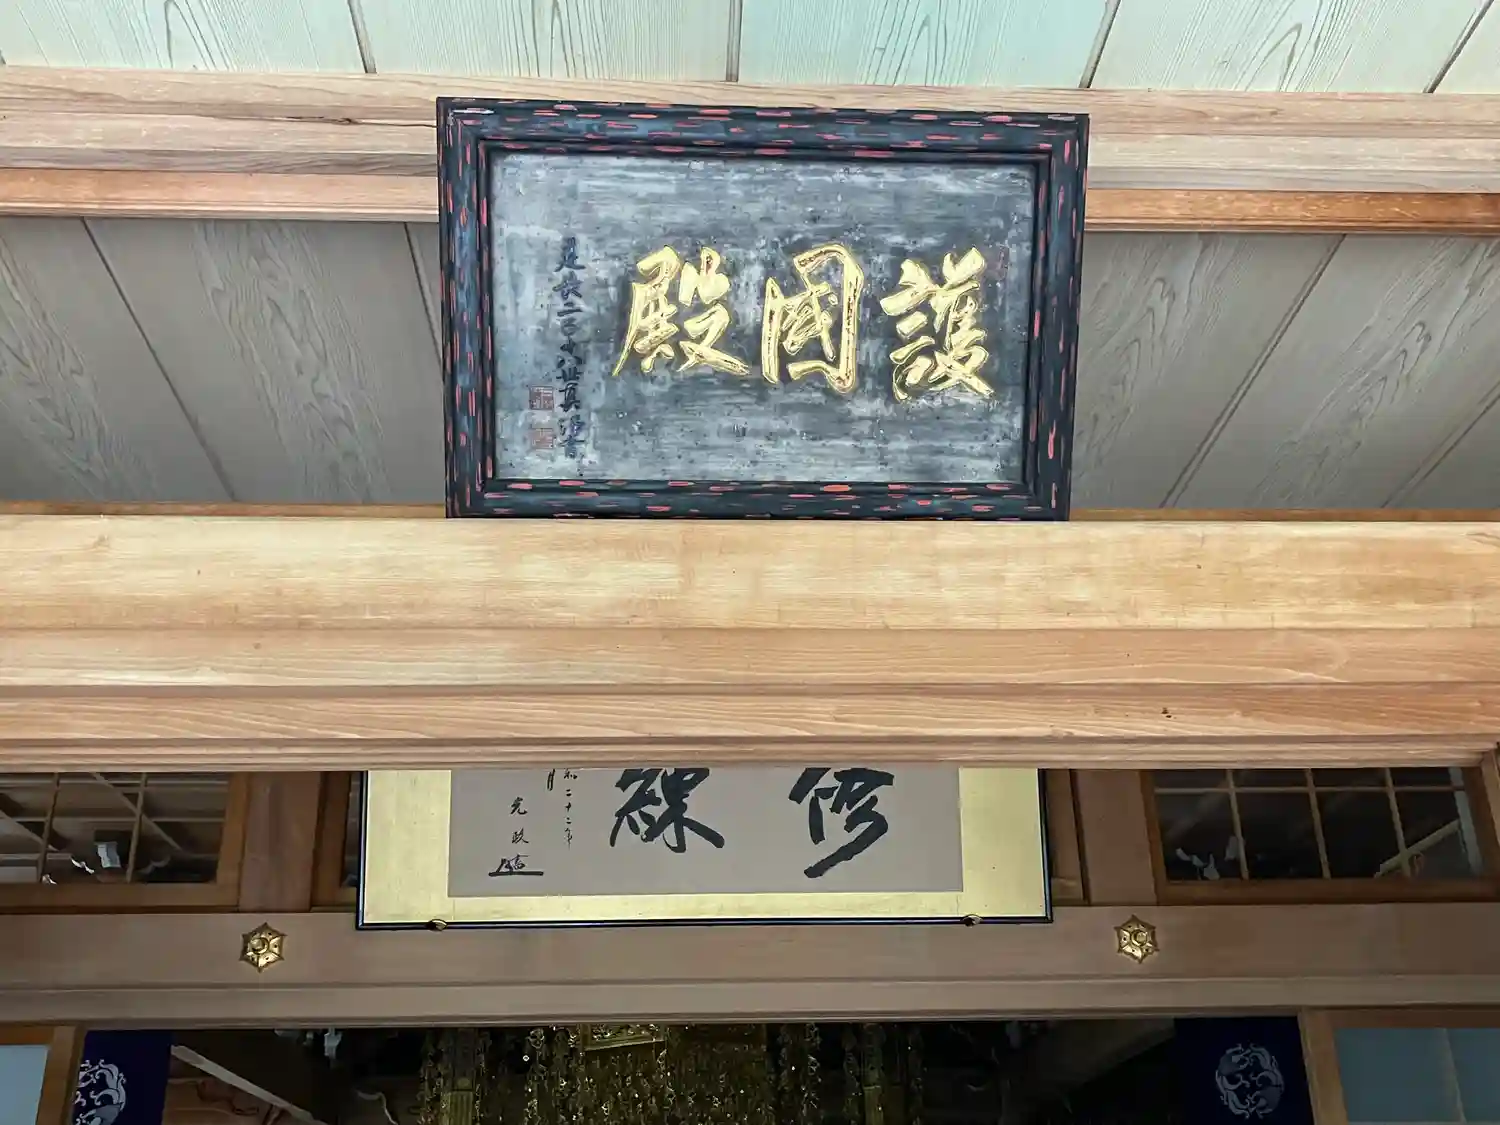 護國殿
足長二百六世真浄書
修禊
和二十二年
月
光政